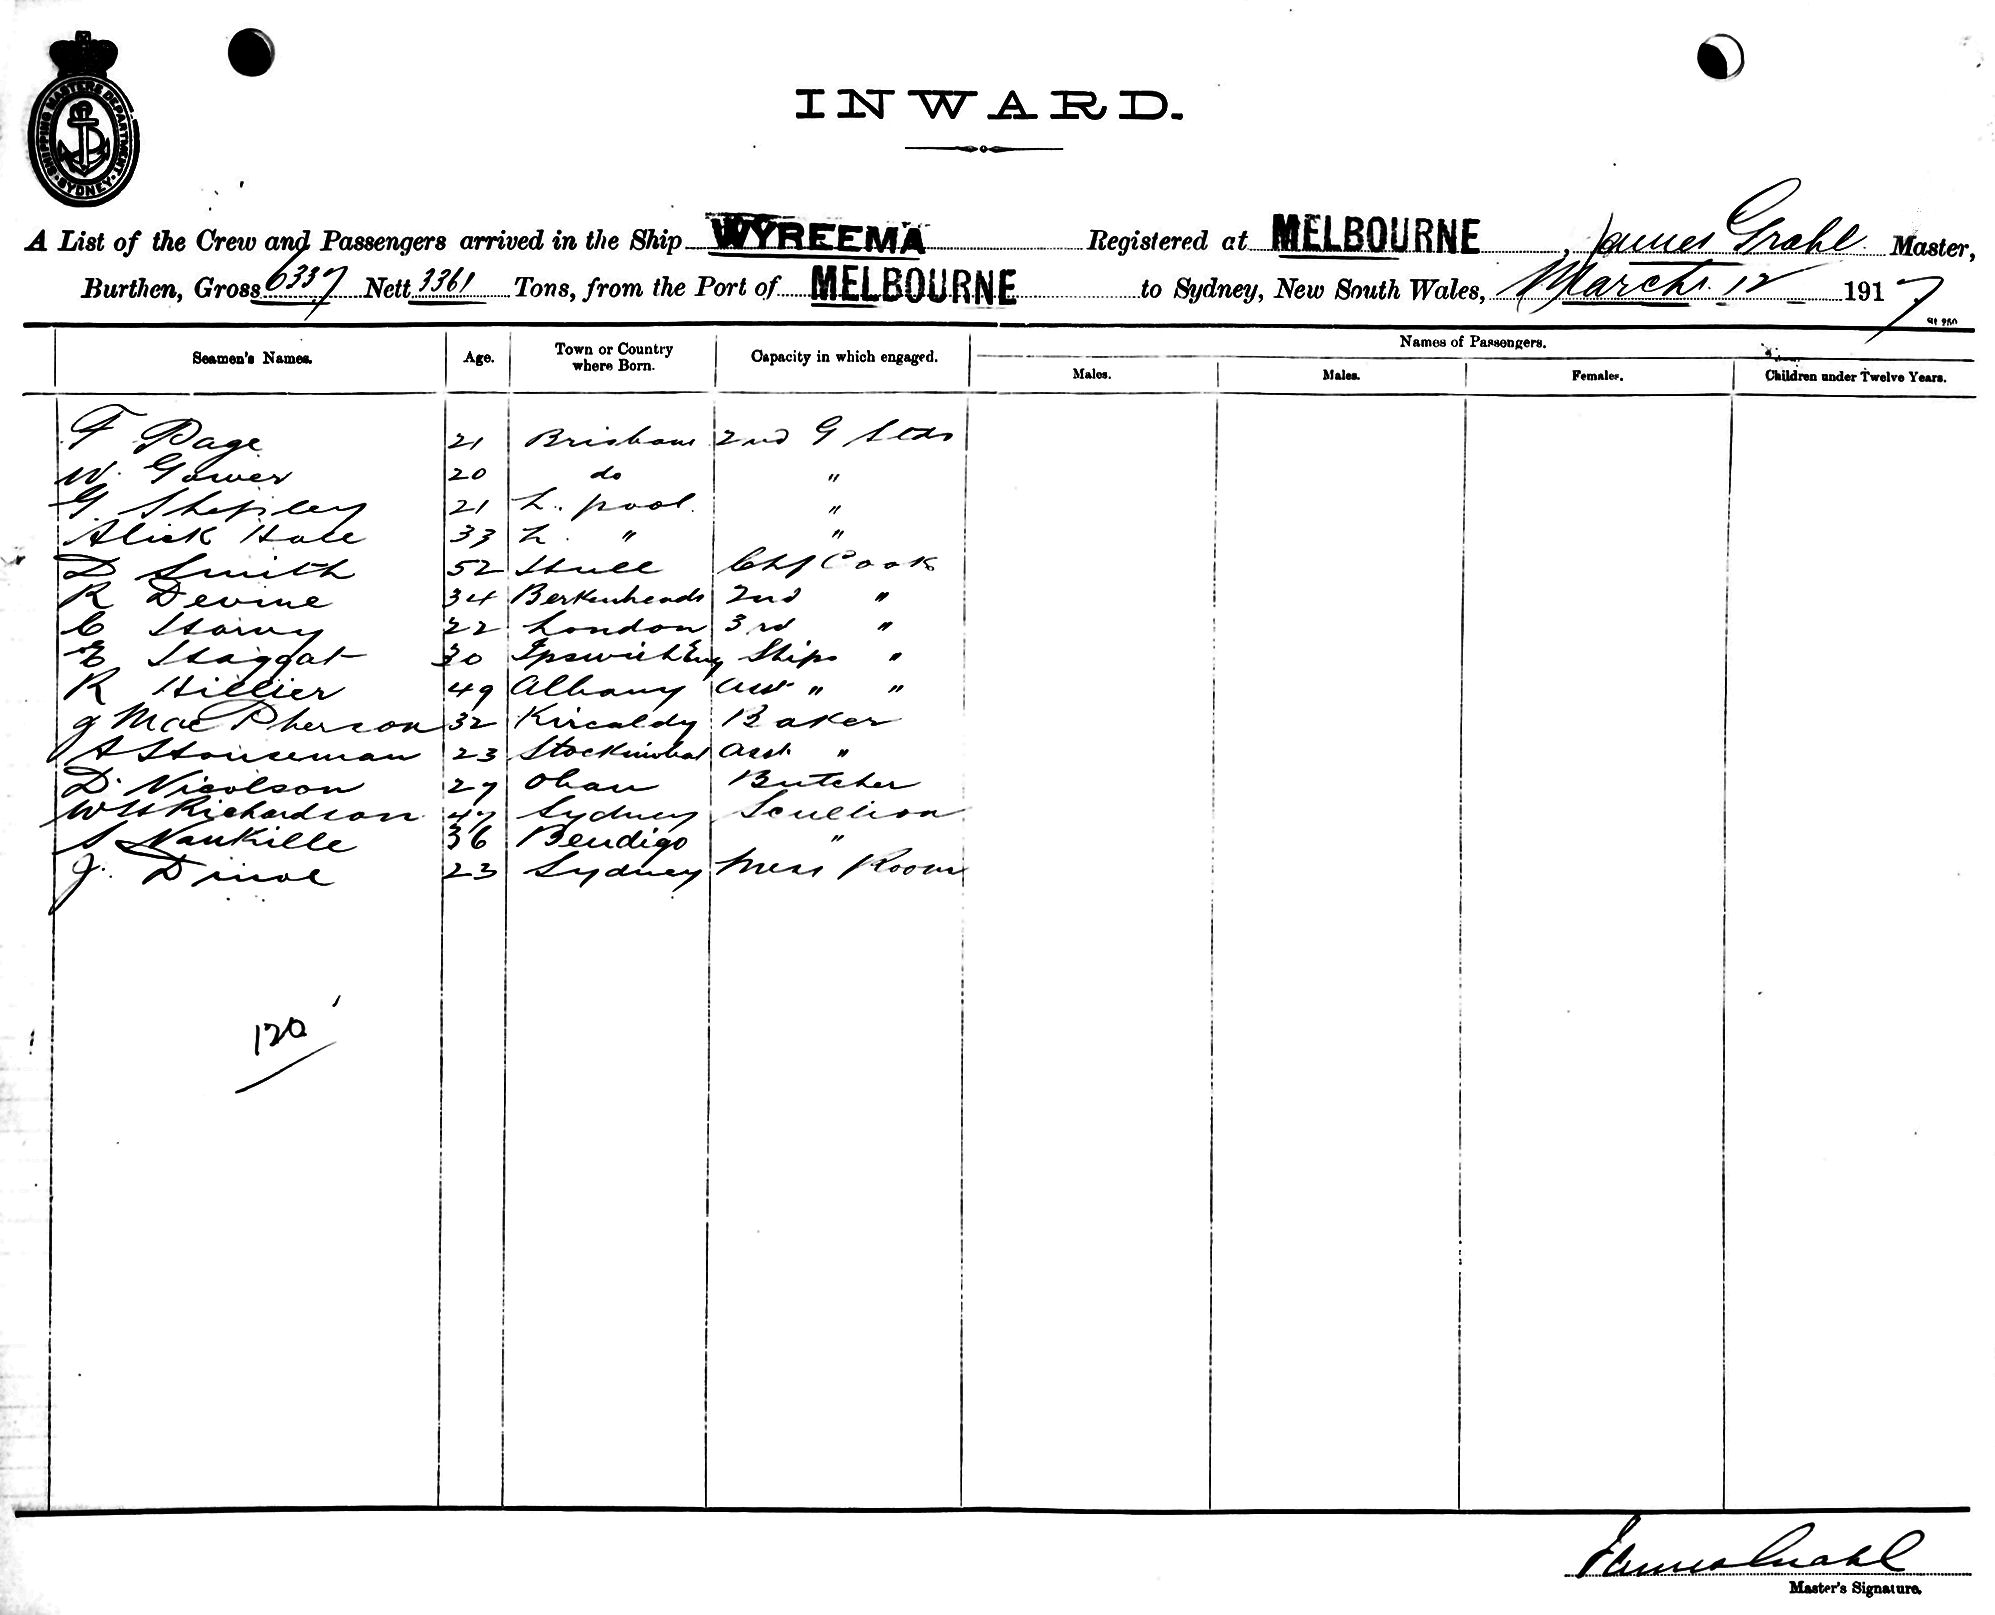 SHIPPING MASTERS DEPARTMENT SYDNEY
INWARD.
A List of the Crew and Passengers arrived in the Ship WYREEMA Registered at MELBOURNE, James Grahl Master,
Burthen, Gross 6337 Nett 3361 Tons, from the Port of MELBOURNE to Sydney, New South Wales, March 12 1917
Names of Passengers.
Seamen's Names. Age. Town or Country where Born. Capacity in which engaged. Males. Males. Females. Children under Twelve Years.
F Page 21 Brisbane 2nd G Stds
W. Gower 20 do "
G Shepley 21 L. pool "
Alick Hale 33 L. " "
D Smith 52 Hull Chf Cook
R Devine 34 Berkenheads 2nd "
C Harvy 22 London 3rd "
E Haggat 30 Ipswich Eng Ships "
R Hillier 49 Albany Asst " "
J MacPherson 32 Kircaldy Baker
A Houseman 23 Asst "
D. Nicolson 27 Oban Butcher
W H Richardson 47 Sydney Scullion
S Nankille 36 Bendigo "
J. 23 Sydney Mess Room
120
James Grahl
Master's Signature.